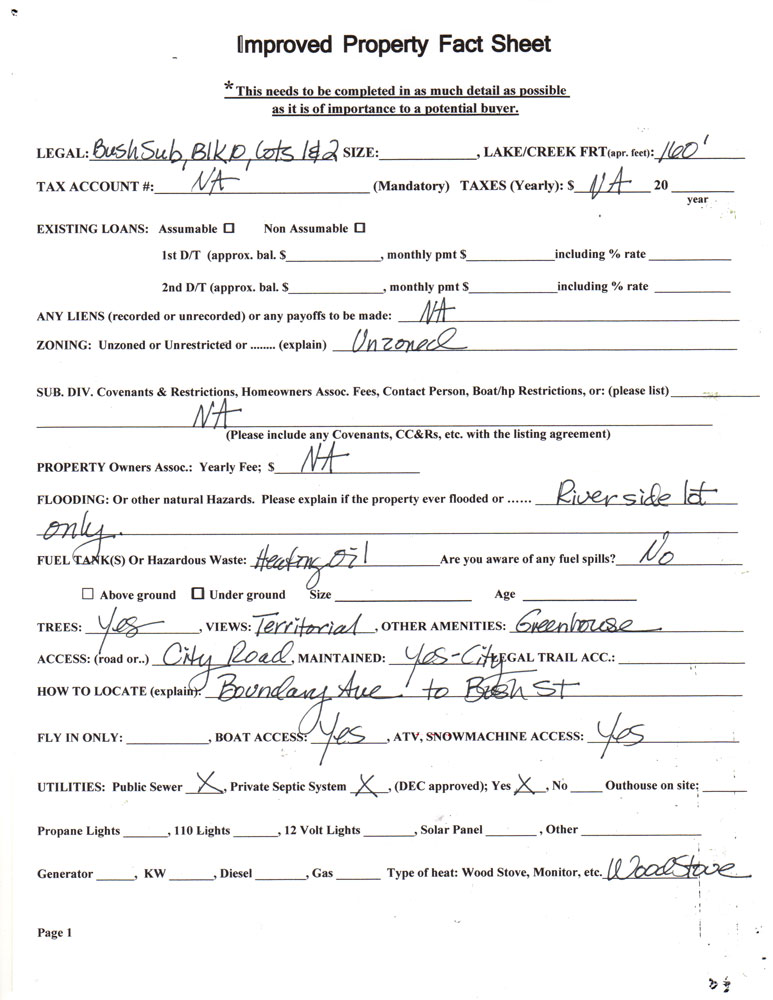 Improved Property Fact Sheet
*This needs to be completed in as much detail as possible
as it is of importance to a potential buyer.
LEGAL: Bush Sub, Blk D, Lots 1&2 SIZE:__________, LAKE/CREEK FRT(apr. feet): 160'
TAX ACCOUNT #: NA (Mandatory) TAXES (Yearly): $ NA 20 ____
year
EXISTING LOANS: Assumable ☐ Non Assumable ☐
1st D/T (approx. bal. $__________, monthly pmt $__________including % rate __________
2nd D/T (approx. bal. $__________, monthly pmt $__________including % rate __________
ANY LIENS (recorded or unrecorded) or any payoffs to be made: NA
ZONING: Unzoned or Unrestricted or ........ (explain) Unzoned
SUB. DIV. Covenants & Restrictions, Homeowners Assoc. Fees, Contact Person, Boat/hp Restrictions, or: (please list)__________
NA
(Please include any Covenants, CC&Rs, etc. with the listing agreement)
PROPERTY Owners Assoc.: Yearly Fee; $ NA
FLOODING: Or other natural Hazards. Please explain if the property ever flooded or ...... River side lot
only.
FUEL TANK(S) Or Hazardous Waste: Heating Oil Are you aware of any fuel spills? No
☐ Above ground ☐ Under ground Size __________ Age __________
TREES: Yes, VIEWS: Territorial, OTHER AMENITIES: Greenhouse
ACCESS: (road or..) City Road, MAINTAINED: Yes-City LEGAL TRAIL ACC.:__________
HOW TO LOCATE (explain): Boundary Ave to Bush St
FLY IN ONLY: __________, BOAT ACCESS: Yes, ATV, SNOWMACHINE ACCESS: Yes
UTILITIES: Public Sewer X, Private Septic System X, (DEC approved); Yes X, No ____ Outhouse on site; ____
Propane Lights ____, 110 Lights ____, 12 Volt Lights ____, Solar Panel ____, Other __________
Generator ____, KW ____, Diesel ____, Gas ____ Type of heat: Wood Stove, Monitor, etc. Wood Stove
Page 1